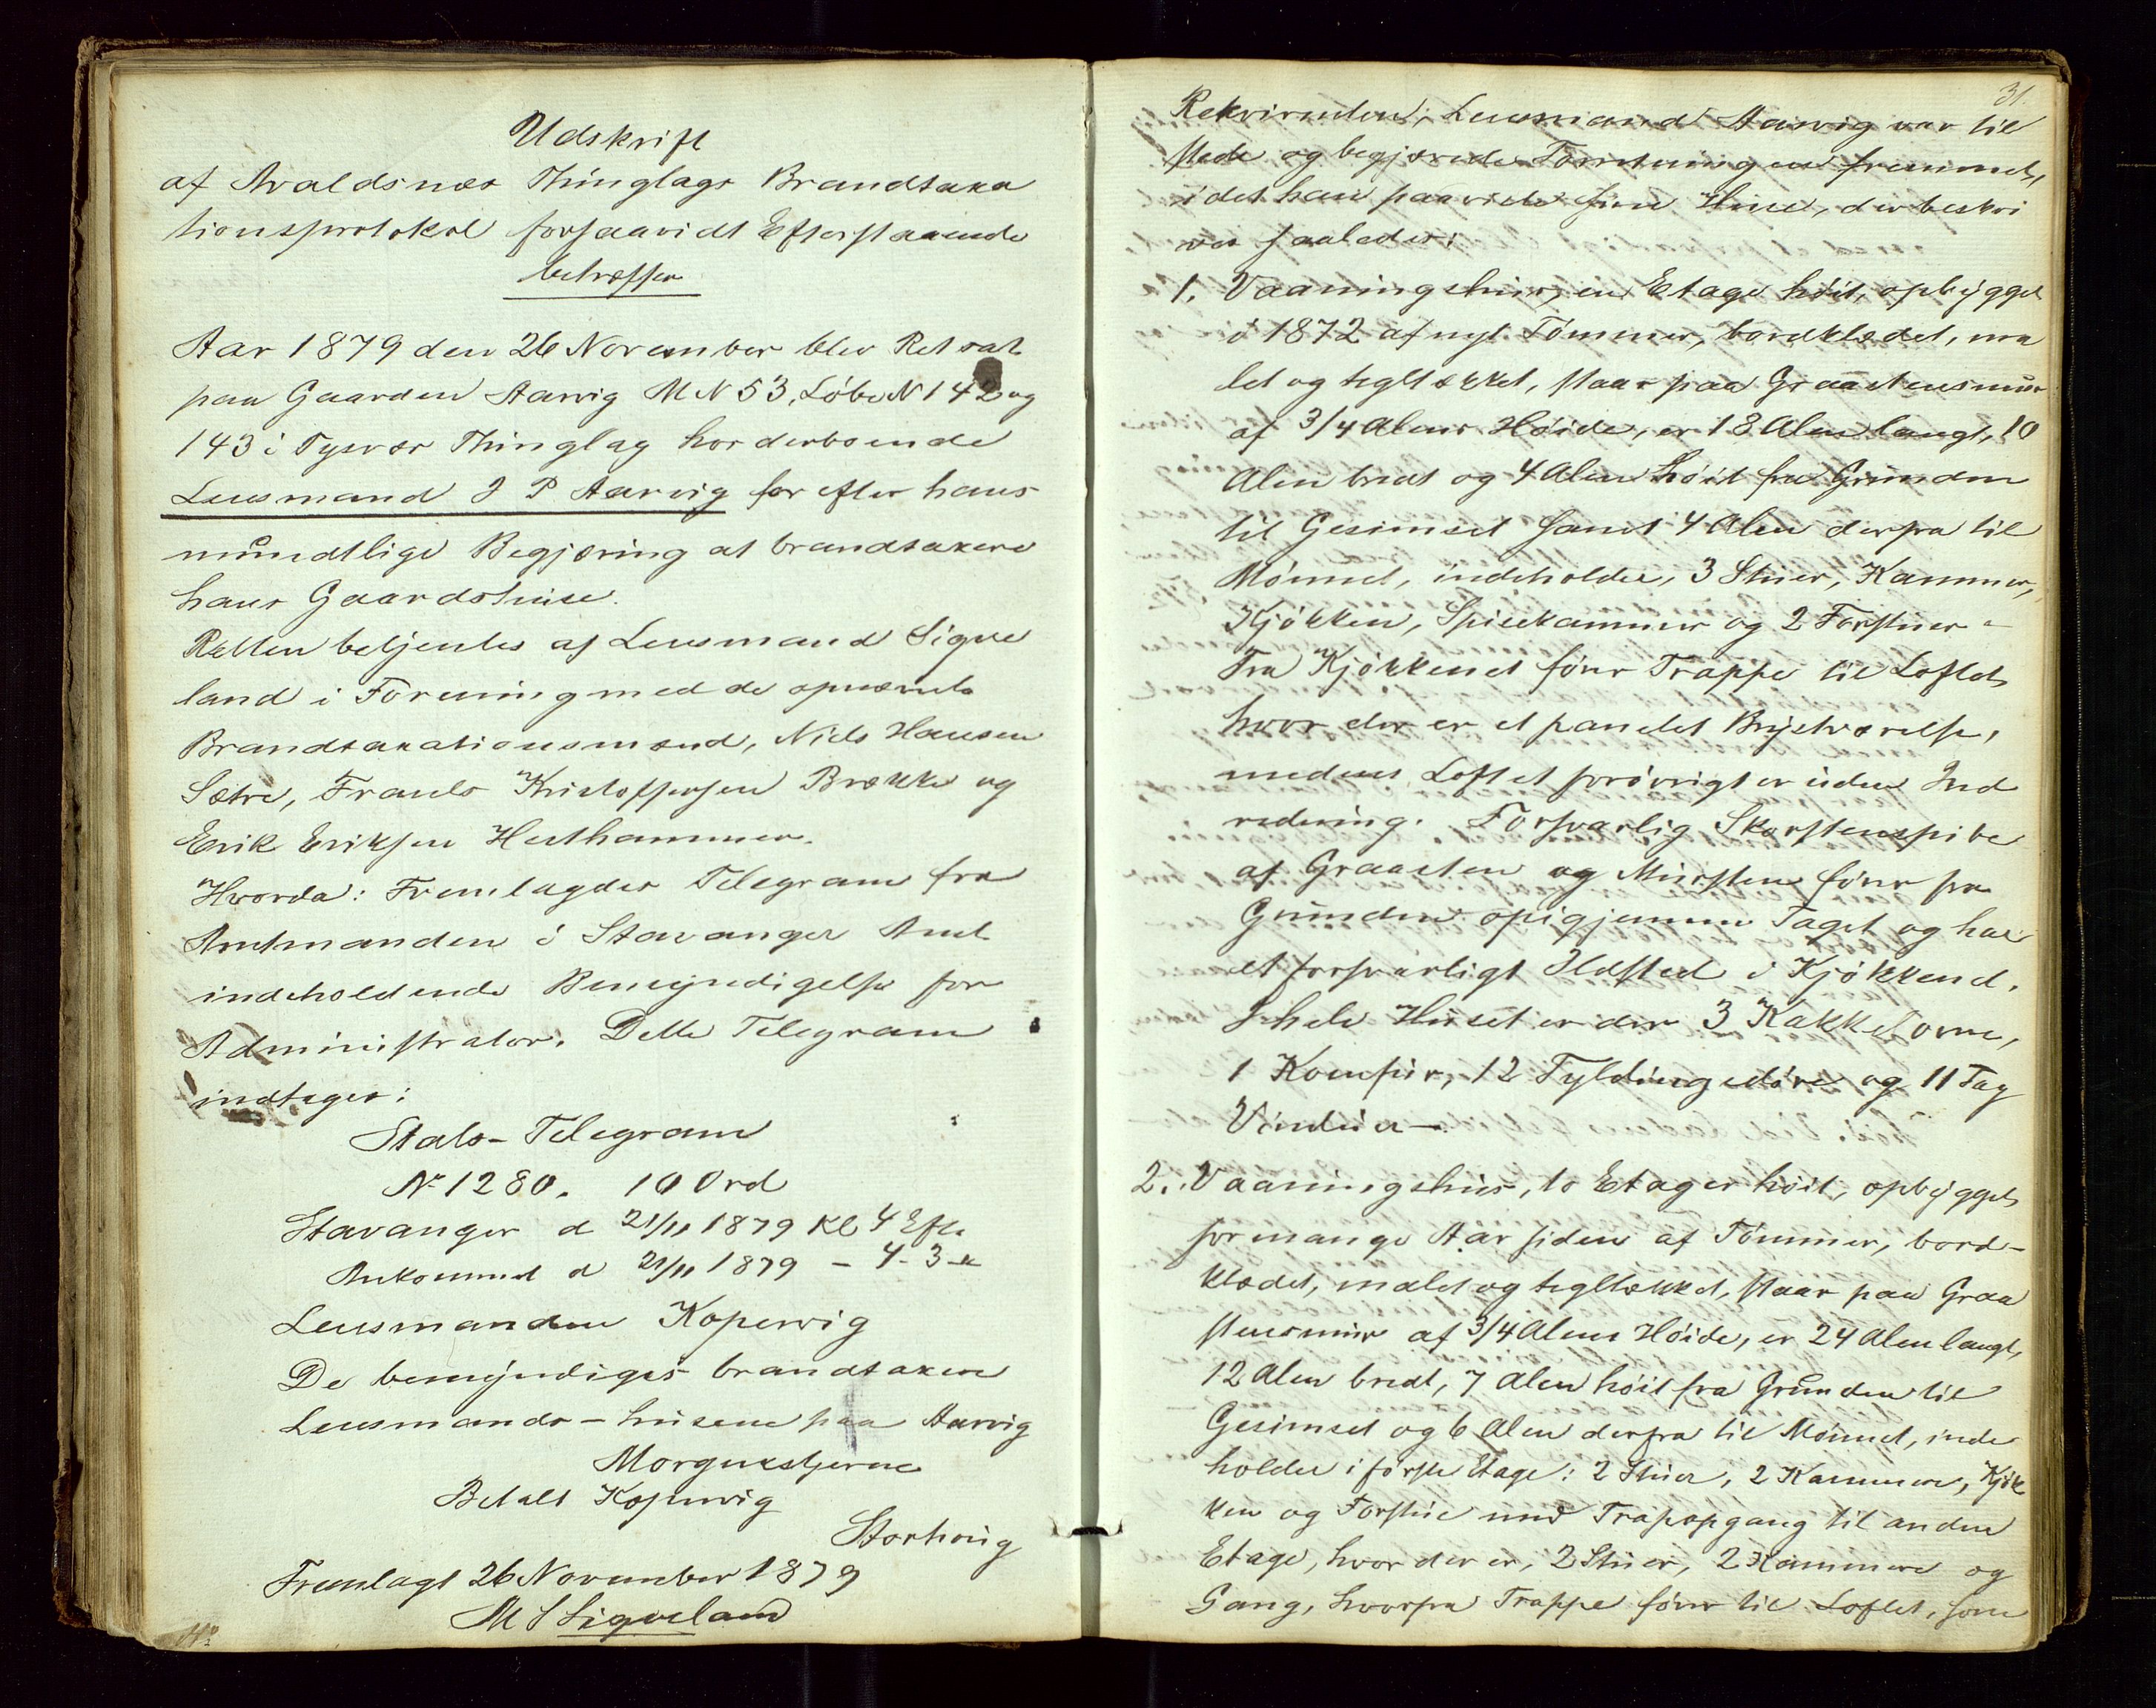 Udskrift
af Avaldsnæs Thinglags Brandtaxa
tionsprotokol forsaavidt Efterstaaende
betræffer
Aar 1879 den 26 November blev Ret sat
paa Gaarden Aarvig M N 53, Løbe N 142 og
143 i Tysvær Thinglag hos derboende
Lensmand J P Aarvig for efter hans
mundtlige Begjæring at brandtaxere
hans Gaardshuse.
Retten betjentes af Lensmand Sigve
land i Forening med de opnævnte
Brandtaxationsmænd, Niels Hansen
Sætre, Frants Kristoffersen Brække og
Erik Eriksen Hesthammer.
Hvorda: Fremlagdes Telegram fra
Amtmanden i Stavanger Amt
indeholdende Bemyndigelse for
Administrator. Dette Telegram
indtages:
Stats-Telegram
No 1280. 10 Ord
Stavanger d 21/11 1879 Kl 4 Eft.
Ankommet d 21/11 1879 - 4-3 -"
Lensmanden Kopervig
De bemyndiges brandtaxere
Lensmands-husene paa Aarvig
Morgenstjerne
Betalt Kopervig
Fremlagt 26 November 1879
M S Sigveland
31.
Rekvirenten, Lensmand Aarvig var til
stede og begjærede Forretningen fremmet,
idet han paaviste sine Huse, der beskri
ves saaledes:
1. Vaaningshus, en Etage høit, opbygget
i 1872 af nyt Tømmer, bordklædet, ma
let og tegltækket, staar paa Graastensmur
af 3/4 Alens Høide, er 18 Alen langt, 10
Alen bredt og 4 Alen høit fra Grunden
til Gesimset samt 4 Alen derfra til
Mønnet, indeholder, 3 Stuer, Kammer,
Kjøkken, Spisekammer og 2 Forstuer -
Fra Kjøkkenet fører Trappe til Loftet,
hvor der er et panelet Brystværelse,
medens Loftet forøvrigt er uden Ind
redning. Forsvarlig Skorstenspibe
af Graasten og Mursten fører fra
Grunden opigjennem Taget og har
et forsvarligt Ildsted i Kjøkkenet.
I hele Huset er der 3 Kakkelovne,
1 Komfur, 12 Fyldingsdøre og 11 Fag
Vinduer -
2. Vaaningshus, to Etager høit, opbygget
for mange Aar siden af Tømmer, bord-
klædet, malet og tegltækket, staar paa Graa
stensmur af 3/4 Alens Høide, er 24 Alen langt,
12 Alen bredt, 7 Alen høit fra Grunden til
Gesimset og 6 Alen derfra til Mønnet, inde
holder i første Etage: 2 Stuer, 2 Kammere, Kjøk
ken og Forstue med Trapopgang til anden
Etage, hvor der er, 2 Stuer, 2 Kammere og
Gang, hvorfra Trappe fører til Loftet, som